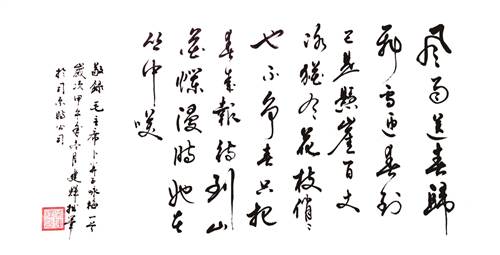 風雨送春歸
飛雪迎春到
已是懸崖百丈
冰猶有花枝俏〻
也不争春只把
春来報待到山
花爛漫時她在
丛中咲
敬錄毛主席卜算子咏梅一首
歲次甲午年六月建輝
於公司